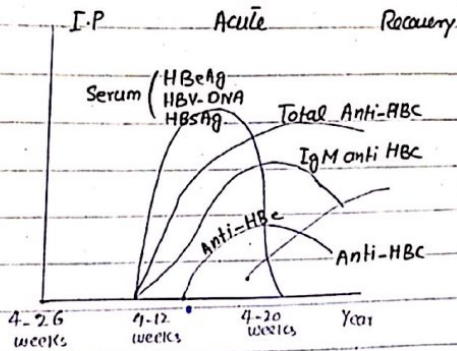 I.P Acute Recovery
Serum
HBeAg
HBV-DNA
HBSAg
Total Anti-HBC
IgM anti HBC
Anti-HBc
Anti-HBC
4-26 weeks
4-12 weeks
4-20 weeks
Year